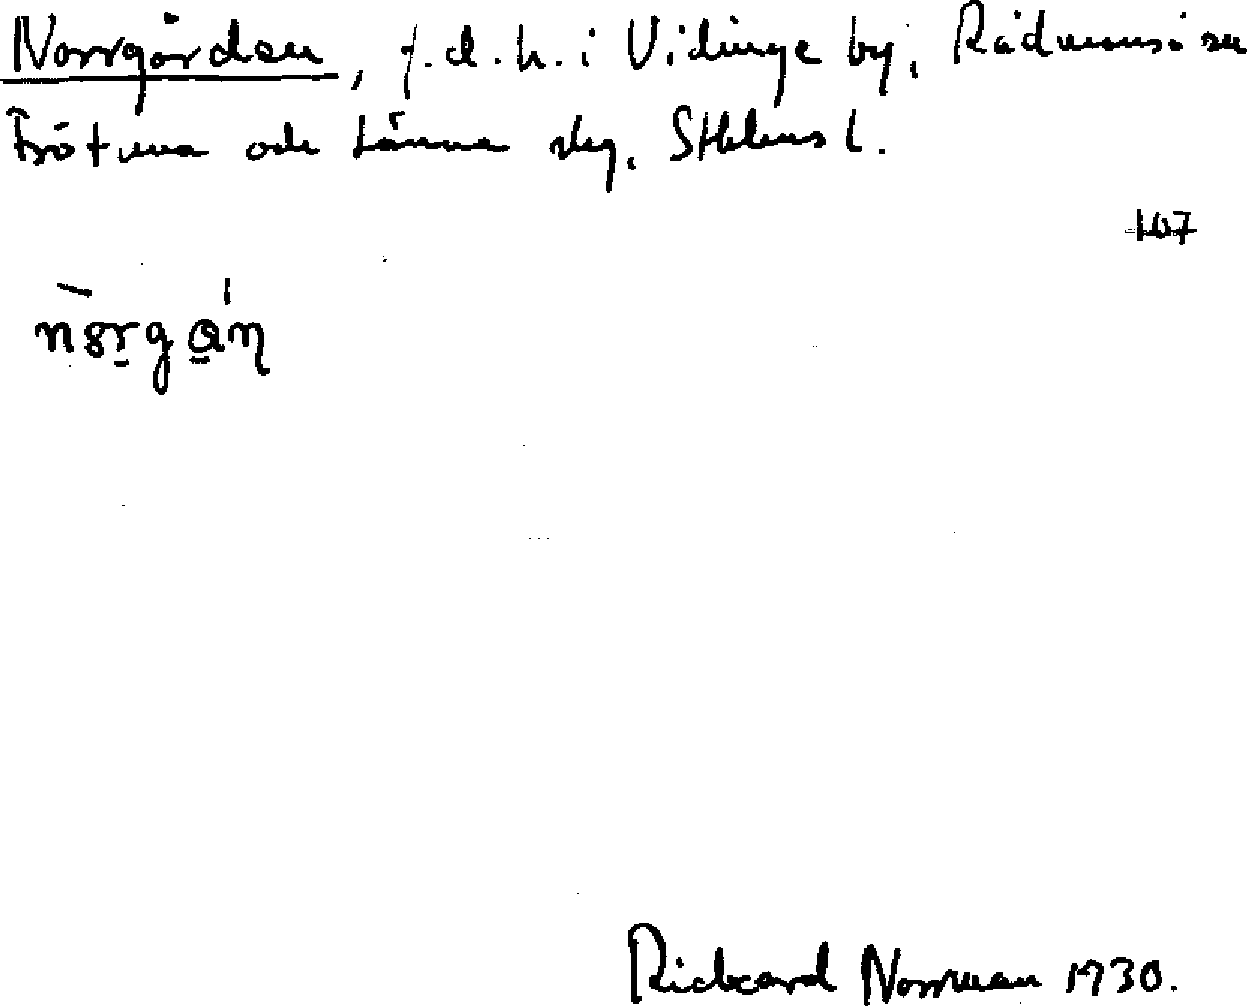 Norrgården, f.d.h. i Vidinge by, Rådmansö sn
Frötuna och Länna skg. Sthlms l.
107
Rickard Norrman 1930.